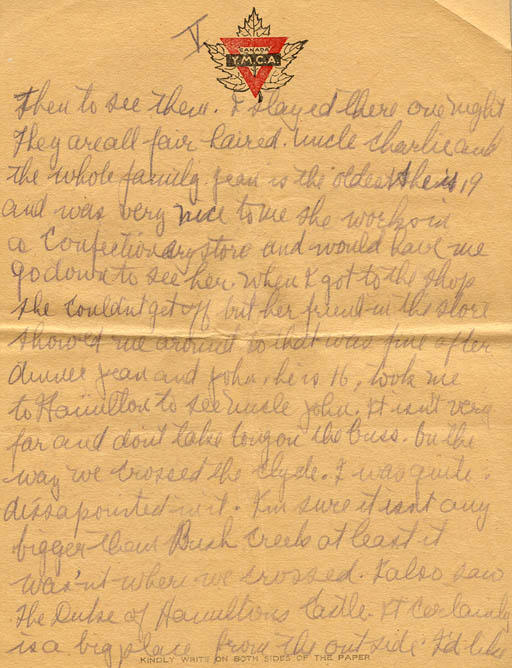 V
CANADA
Y.M.C.A.
then to see them. I stayed there one night
They are all fair haired. Uncle Charlie and
the whole family. Jean is the oldest she is 19
and was very nice to me she works in
a Confectionary store and would have me
go down to see her. When I got to the shop
she couldnt get off but her friend in the store
showed me around so that was fine after
dinner Jean and John, he is 16, took me
to Hamilton to see Uncle John. It isn't very
far and don't take long on the buss. On the
way we crossed the Clyde. I was quite
dissapointed in it. I'm sure it isnt any
bigger than Bush Creek at least it
was'nt where we crossed. I also saw
The Duke of Hamiltons Castle. It certainly
is a big place from the outside I'd like
KINDLY WRITE ON BOTH SIDES OF THE PAPER